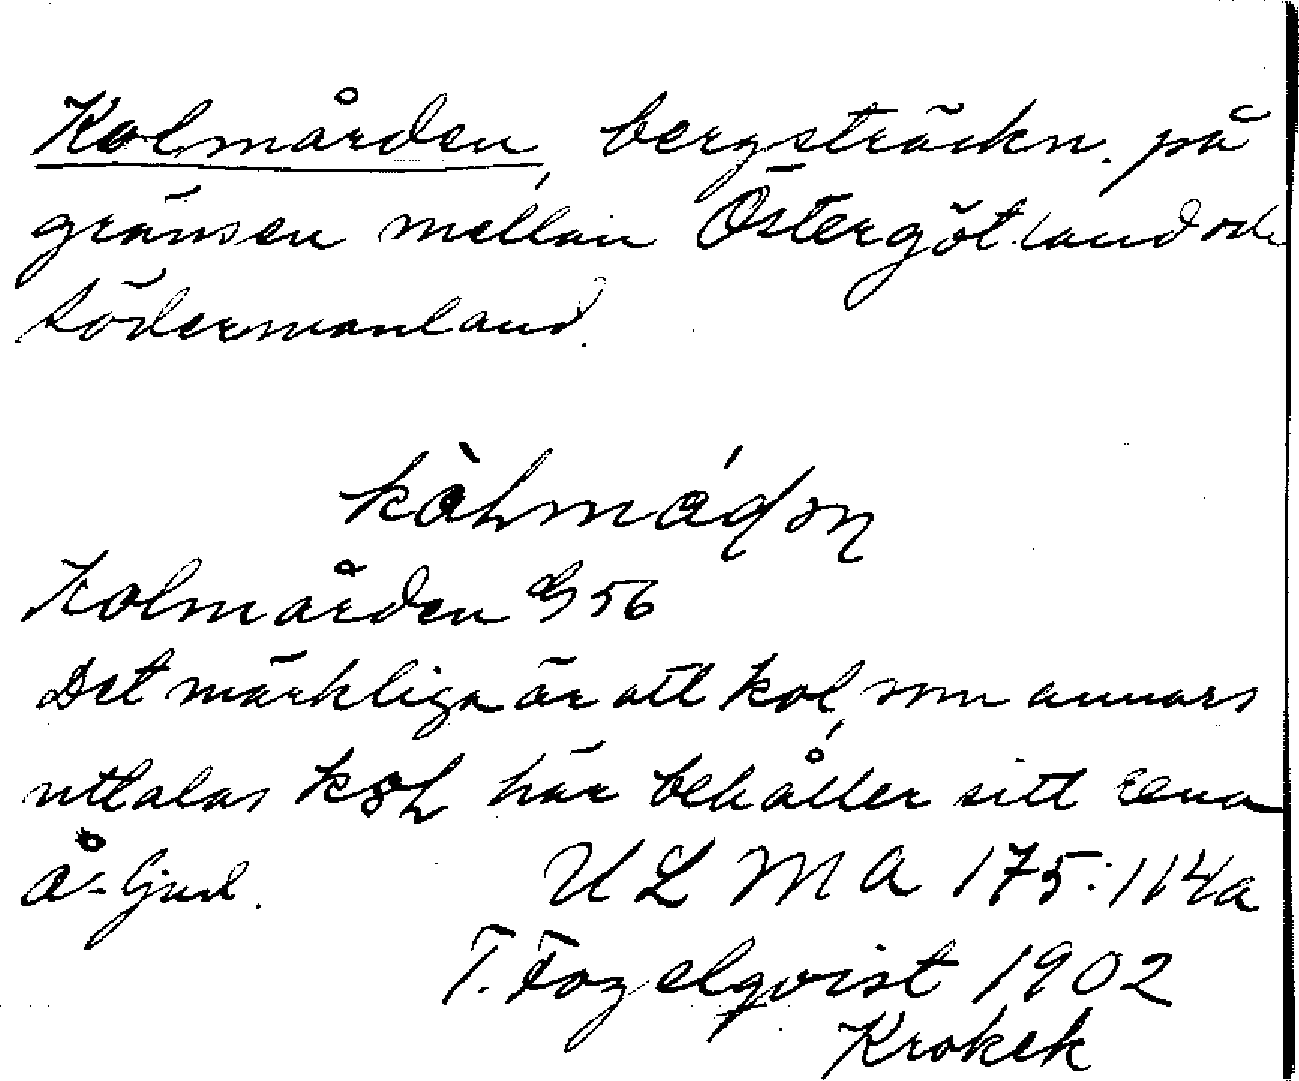 Kolmården, bergsträckn. på
gränsen mellan Östergötland och
Södermanland.
Kolmården G 56
Det märkliga är att kol, som annars
uttalas här behåller sitt rena
å-ljud. ULMA 175:114a
T. Fogelqvist 1902
Krokek